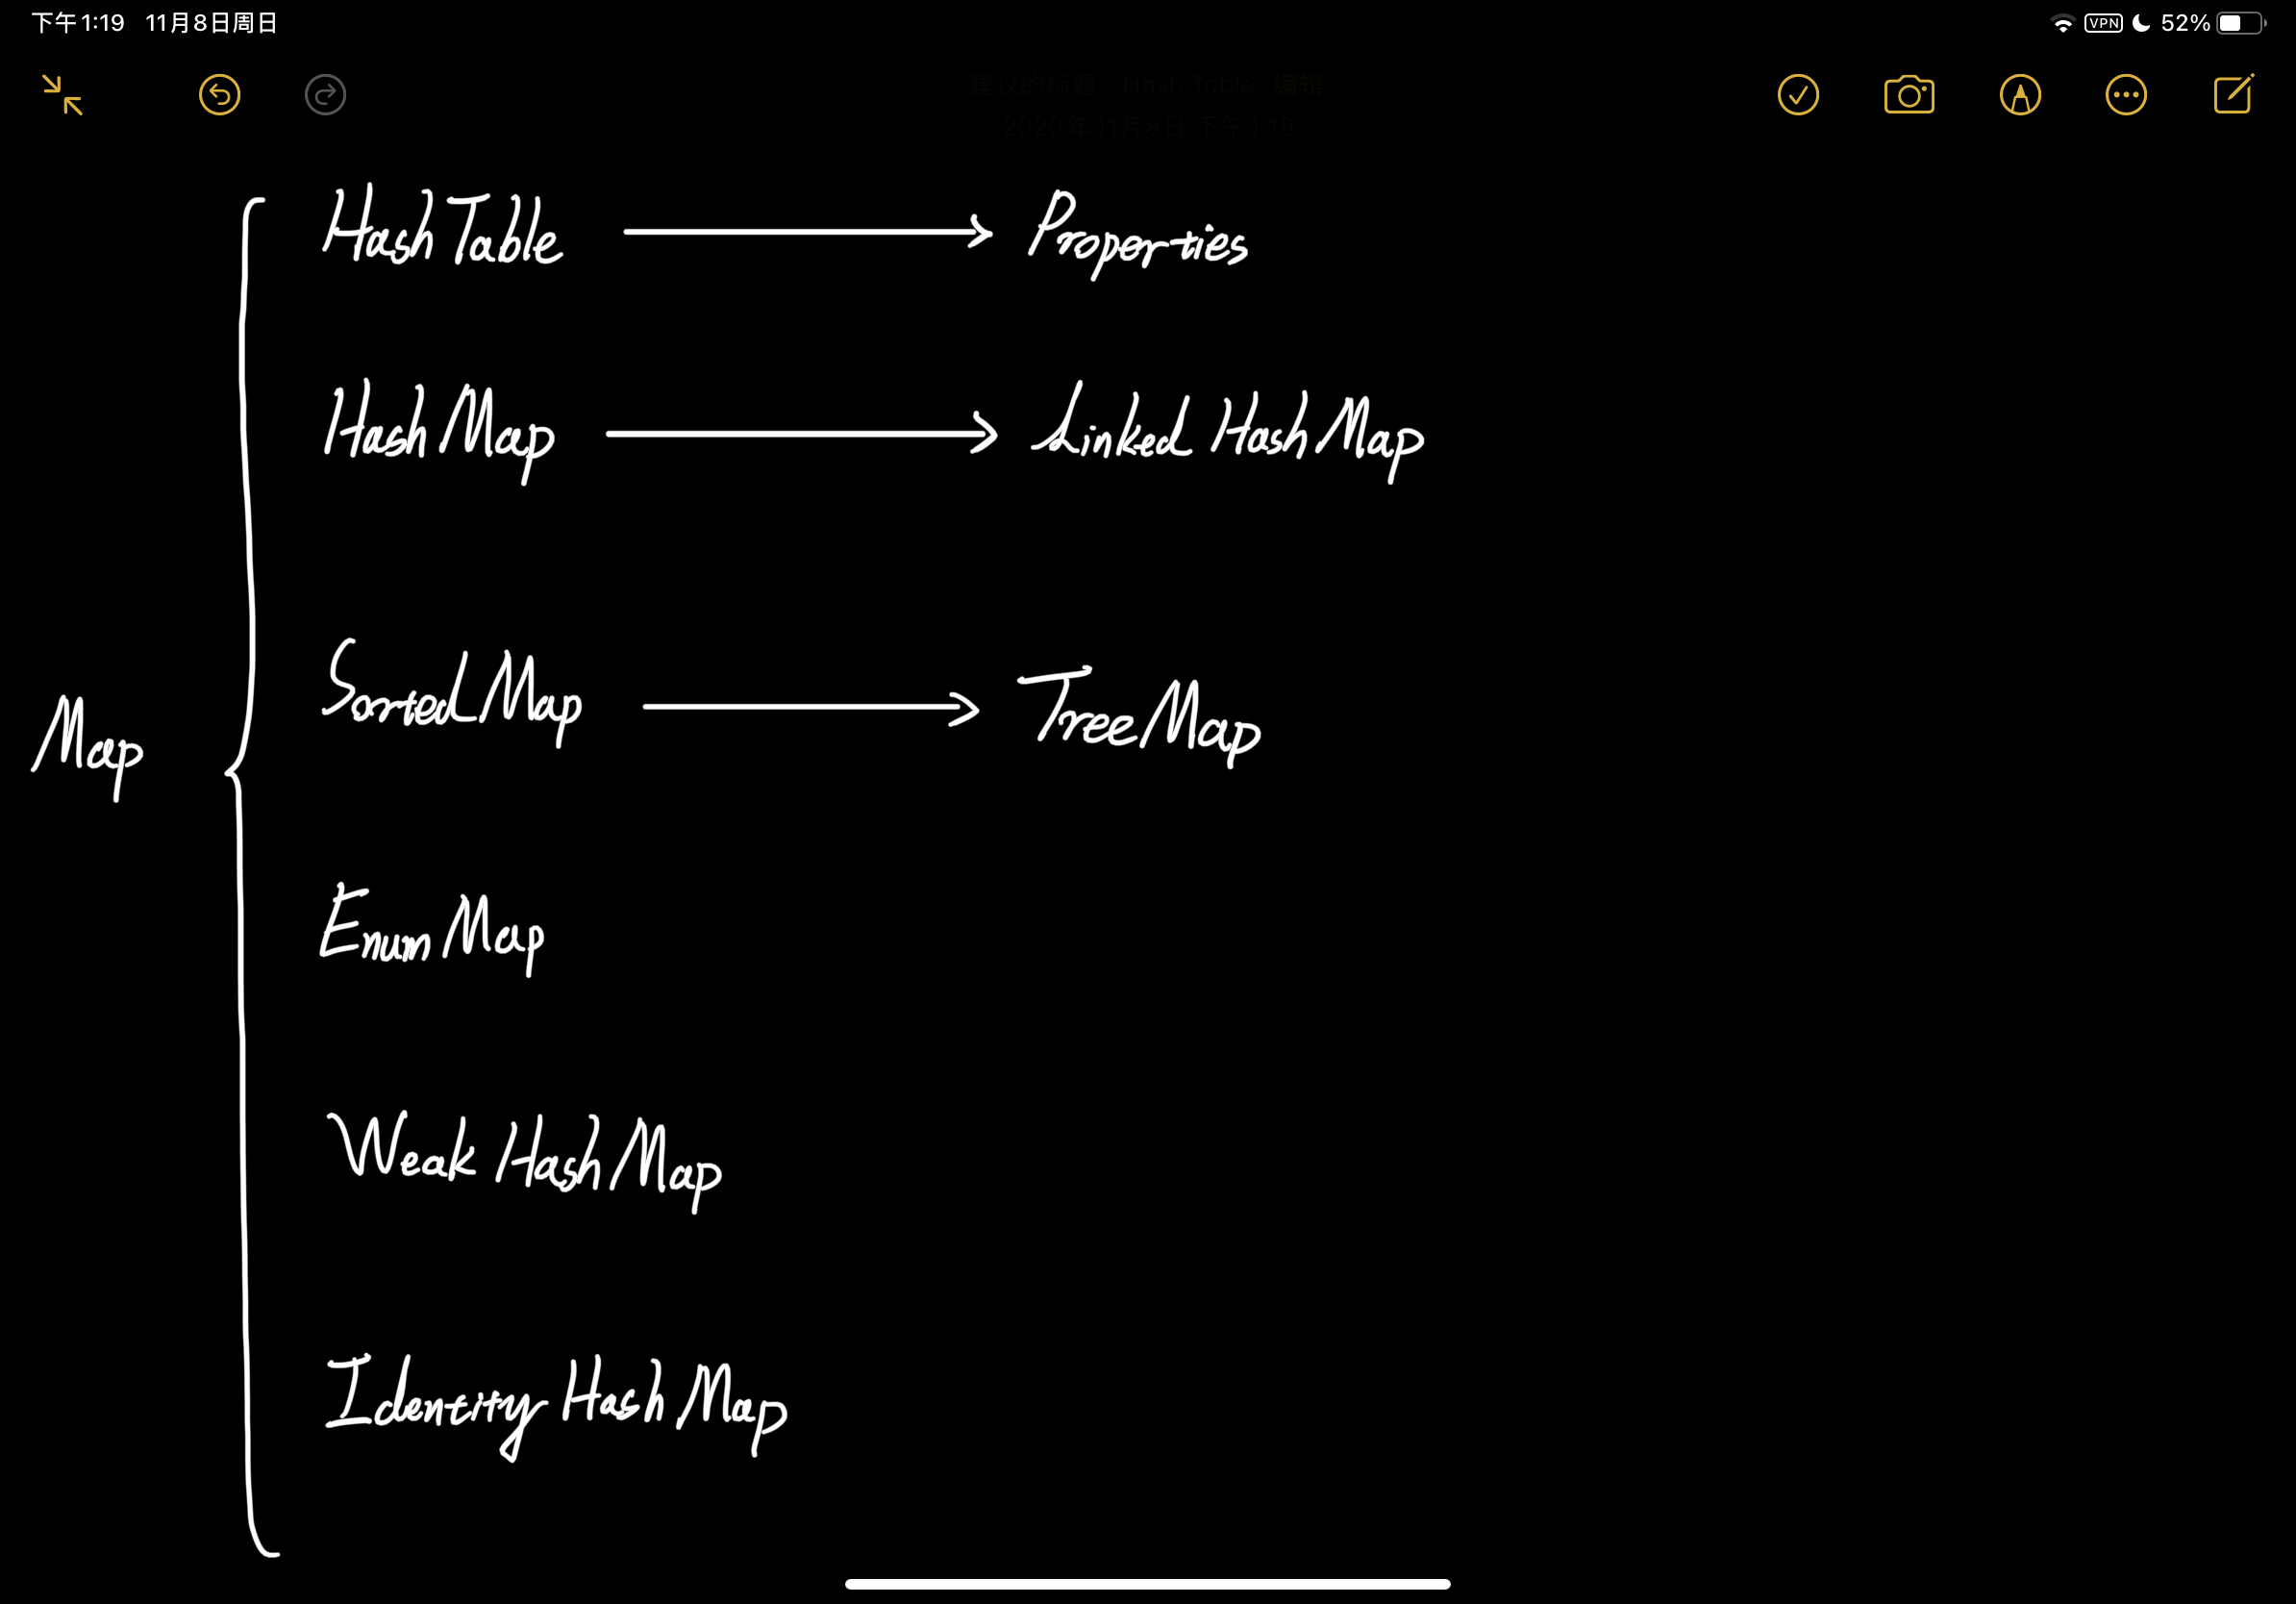 下午1:19 11月8日周日
VPN 52%
建议的标题: Hash Table 编辑
2020年11月8日 下午1:19
HashTable → Properties
HashMap → Linked HashMap
SortedMap → TreeMap
Map
EnumMap
Weak HashMap
Identity HashMap